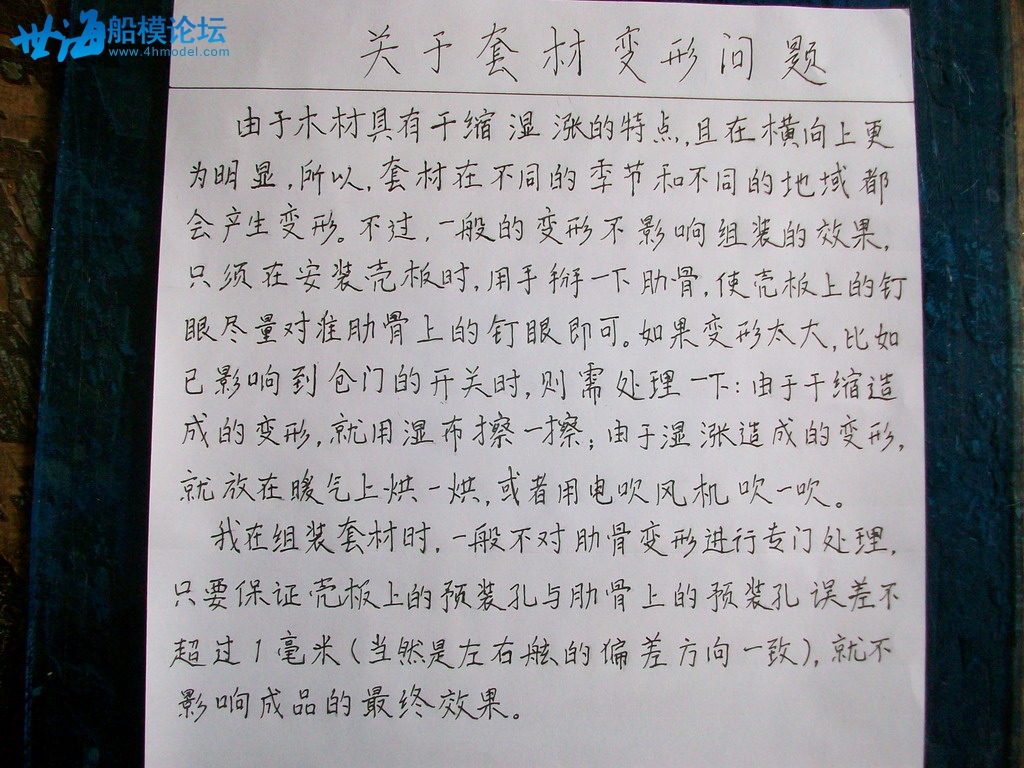 世海船模论坛
www.4hmodel.com
关于套材变形问题
由于木材具有干缩湿涨的特点,且在横向上更
为明显,所以,套材在不同的季节和不同的地域都
会产生变形。不过,一般的变形不影响组装的效果,
只须在安装壳板时,用手掰一下肋骨,使壳板上的钉
眼尽量对准肋骨上的钉眼即可。如果变形太大,比如
已影响到仓门的开关时,则需处理一下:由于干缩造
成的变形,就用湿布擦一擦;由于湿涨造成的变形,
就放在暖气上烘一烘,或者用电吹风机吹一吹。
我在组装套材时,一般不对肋骨变形进行专门处理,
只要保证壳板上的预装孔与肋骨上的预装孔误差不
超过1毫米(当然是左右舷的偏差方向一致),就不
影响成品的最终效果。